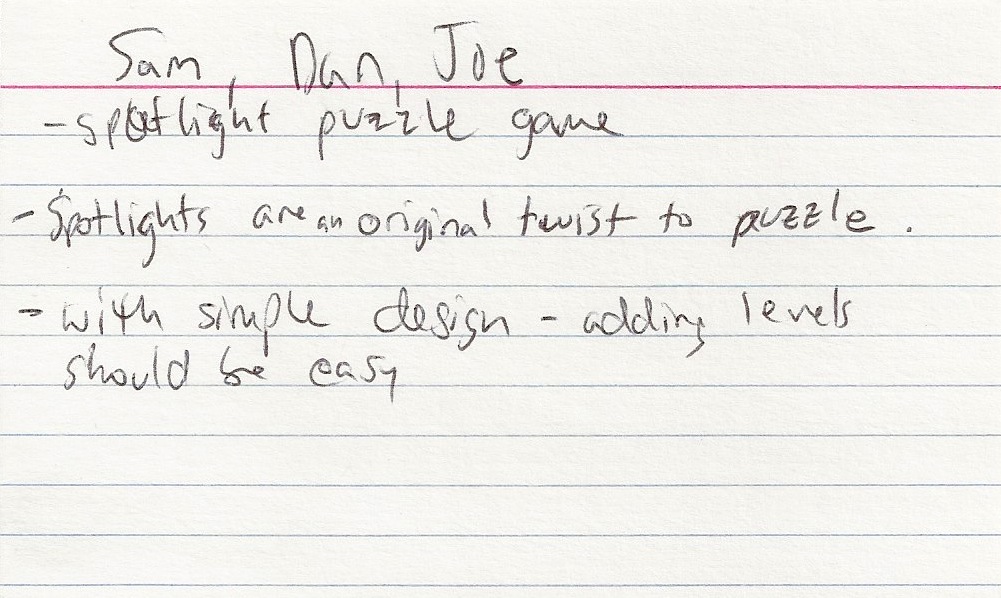 Sam, Dan, Joe
- spotlight puzzle game
- Spotlights are an original twist to puzzle.
- with simple design - adding levels
should be easy